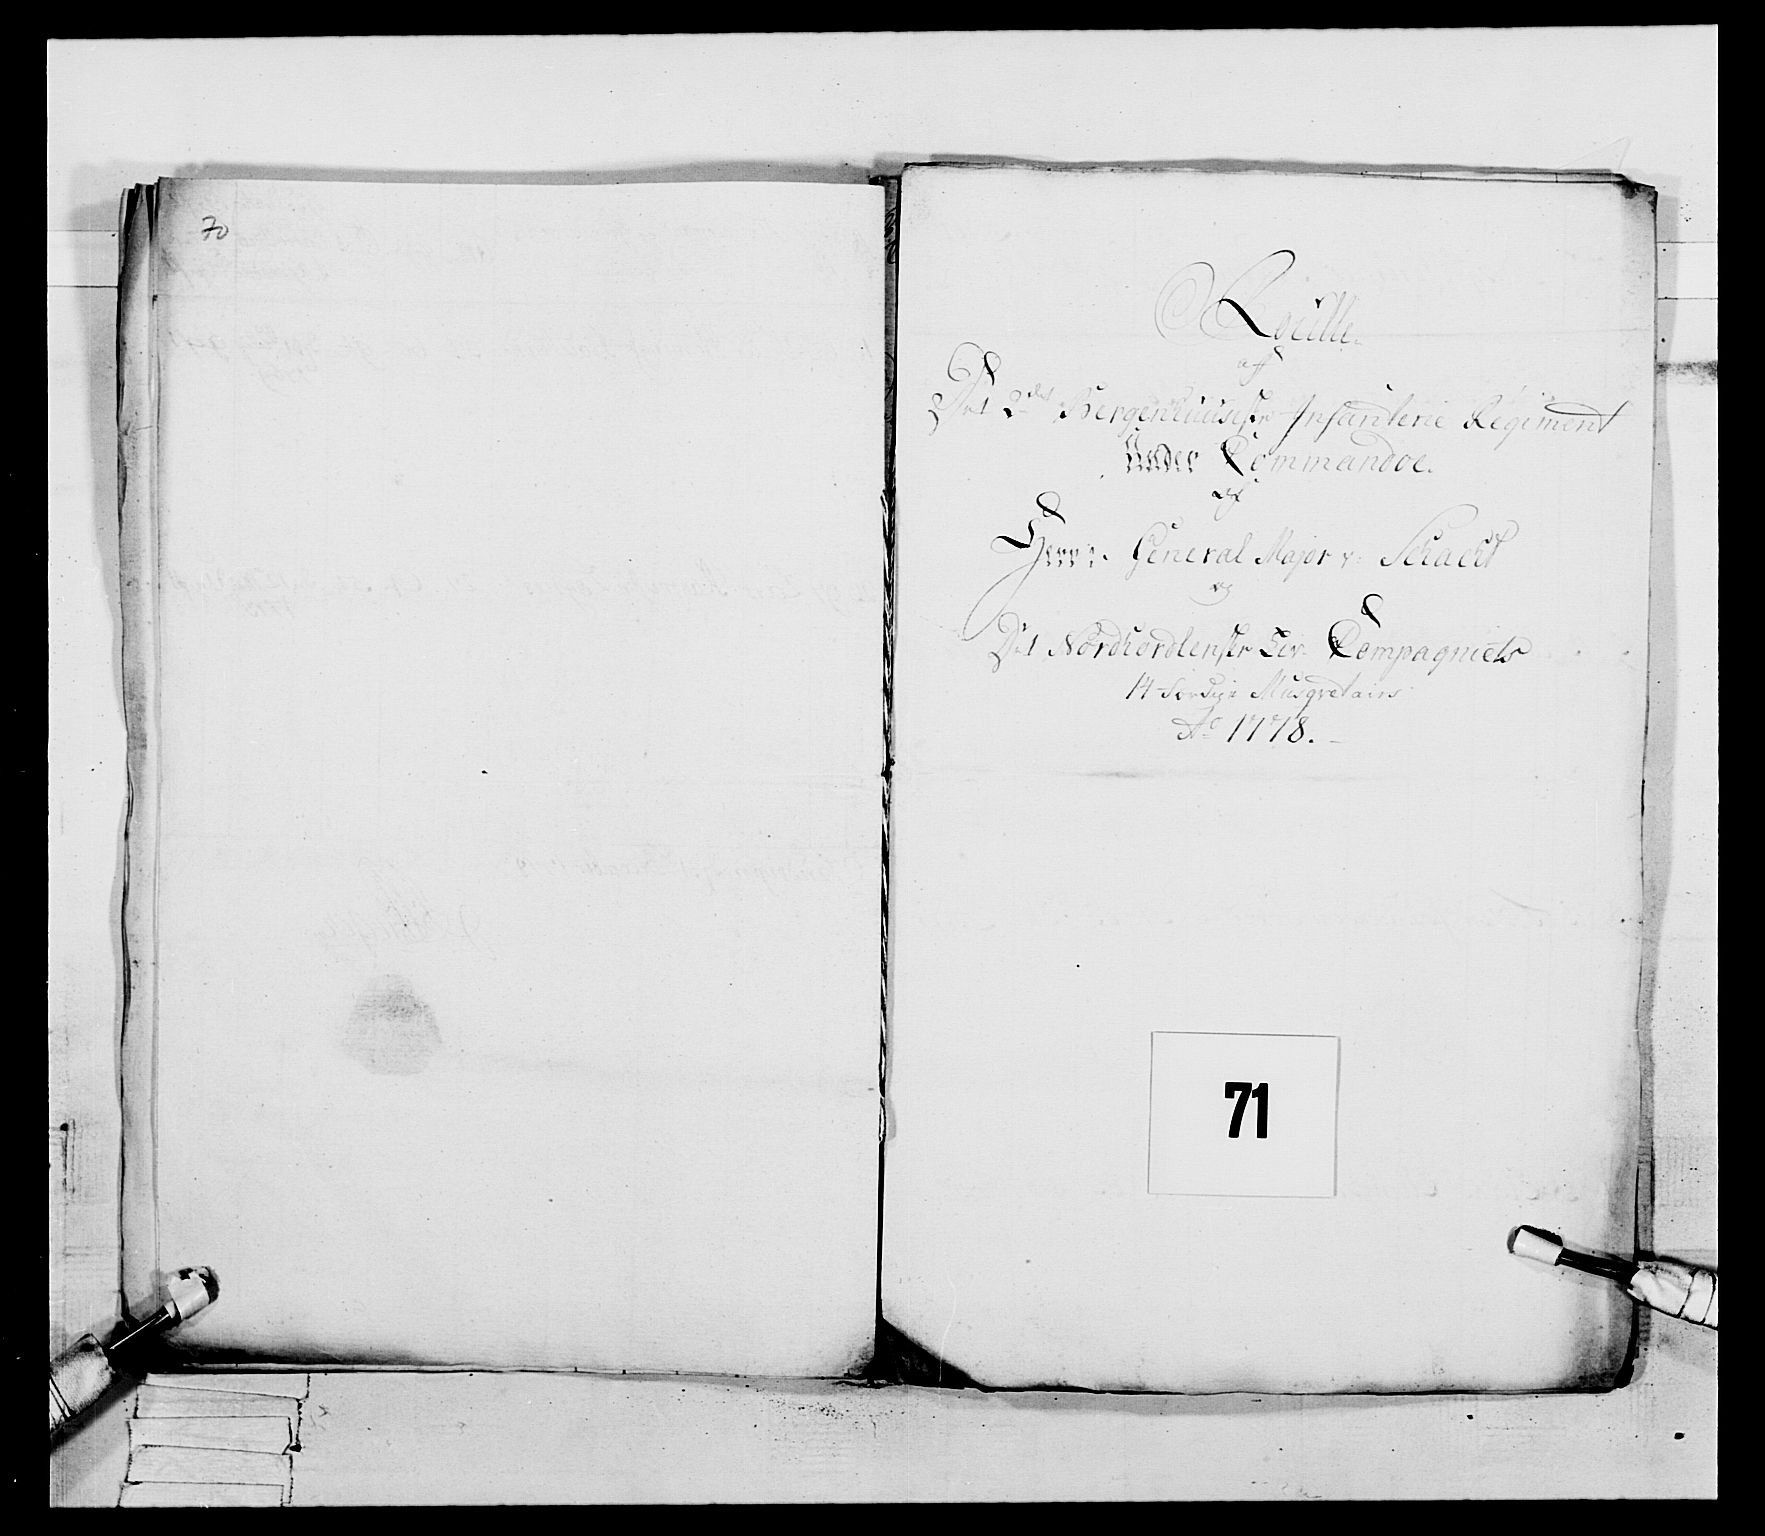 70
Roülle
aff
Det 2det Bergenhuusiske Infanterie Regiment
Ünder Commandoe
af
Herr General Major v: Schacht
og
Det Nordhordlenske Liv Compagniets
14 Musqvetairs
Ao 1778.
71